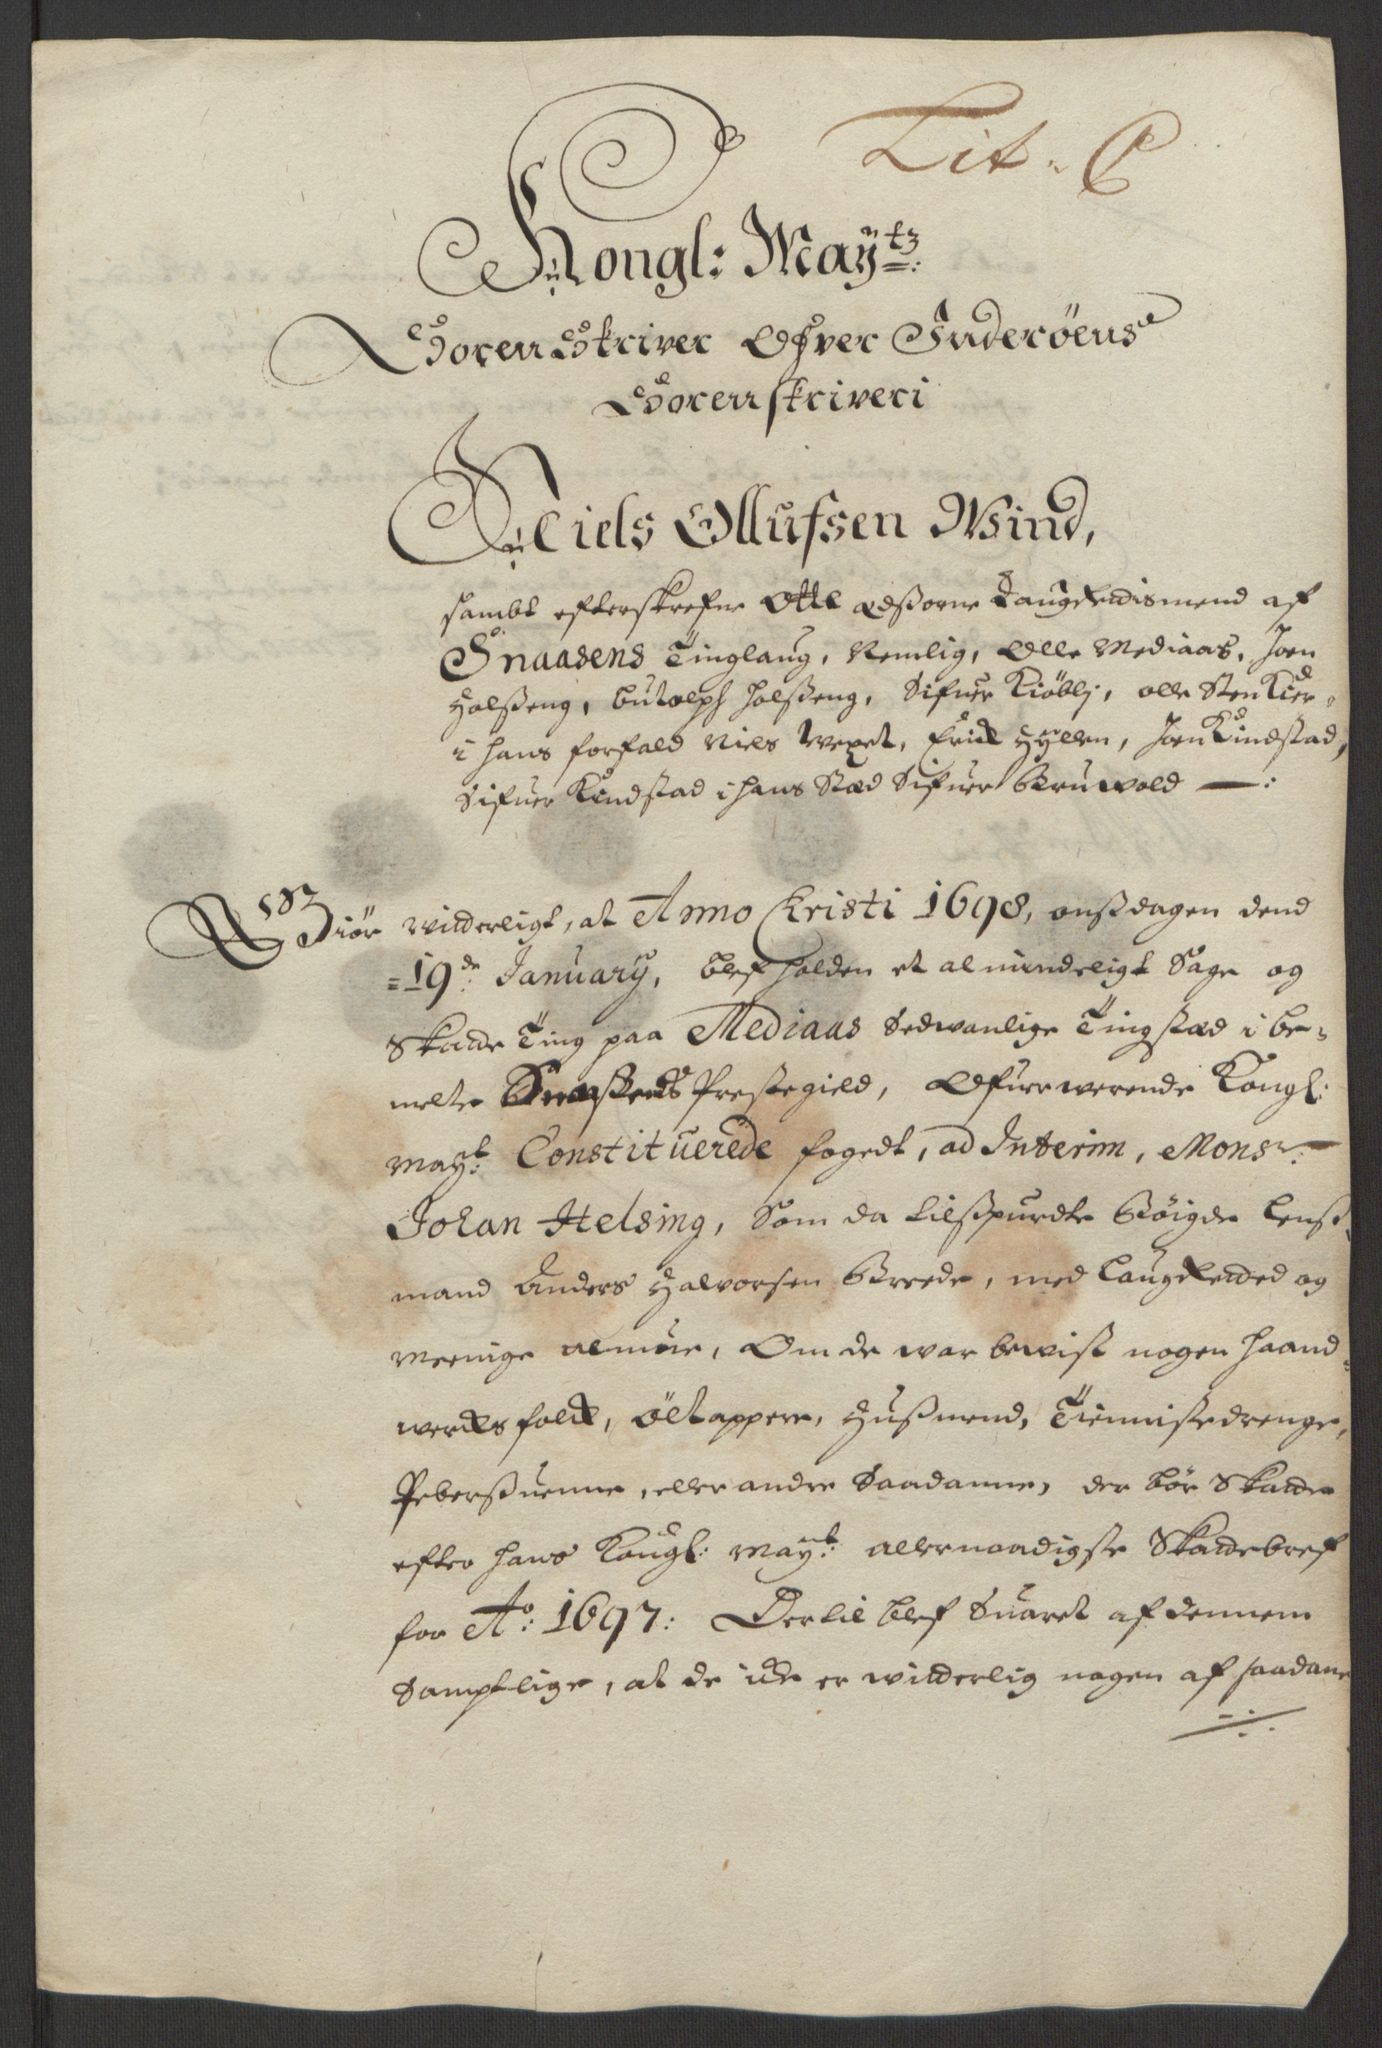 Lit. C
Kongl: May:tz
Soren Skriver Ofver Inderöens
Sorenskriveri
Niels Ollufsen Wind,
sambt efterskrefne Otte Edsorne Laugrettismend af
Snaasens Tinglaug, Nemlig, Olle Mediaas, Joen
Holsseng, Butolph Holsseng, Sifuer Kiöblj, olle StenKier
i hans forfald Niels Wexet, Erich Hyllen, Joen Kindstad,
Sifuer Kindstad i hans Stæd Sifuer Gruwold —:
Giör witterligt, at Anno Christi 1698, onssdagen dend
=19de: January, blef holden et almindeligt Sage og
Skatte Ting paa Mediaas Sedwanlige Tingstæd i be-
melte Snaasens Prestegield, Ofuerwerende Kongl:
May:t Constituerede fogedt, ad Interim, Monsr:
Johan Helsing, Som da tilspurdte Böigde Lenss-
mand Anders Halvorsen Breede, med Laugretted og
meenige almue, Om de war bewist nogen haand-
wercksfolck, öltappere, Hussmend, Tiennistedrenge,
Peberssuenne, eller andre Saadanne, der bör Skatte
efter hans Kongl: May:t allernaadigste Skattebref
for Ao: 1697: Dertil blef Suaret af dennem
Samptlige, at de icke er witterlig nogen af saadane